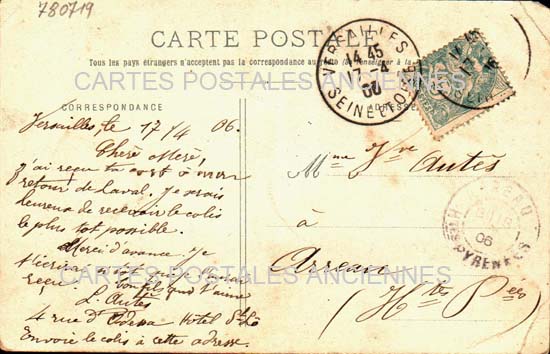 780719
CARTE POSTALE
Tous les pays étrangers n'acceptent pas la correspondance au recto (Se renseigner à la
CORRESPONDANCE
ADRESSE
VERSAILLES
14 45
17 - 4
06
SEINE ET OISE
CARTES POSTALES ANCIENNES
Versailles, le 17/4 06.
Chère Mère,
J'ai reçu ta carte à mon
retour de Laval. Je serais
heureux de recevoir le colis
le plus tot possible.
Merci d'avance. Je
t'écrirai
reçu. Ton fils qui t'aime
L. Autès
4 rue d'Odessa Hôtel St Lô
Envoie le colis à cette adresse.
Mme Vve Autès
à
Arreau
(Htes Pées)
ARREAU
06
HTES PYRENEES
CARTES POSTALES ANCIENNES